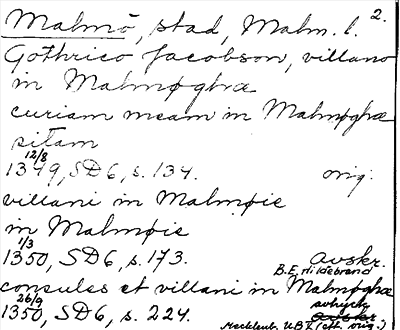 Malmö, stad, Malm. l. 2.
Gothrico Jacobson, villano
in Malmøghæ
curiam meam in Malmøghæ
sitam
12/8
1349, SD6, s. 134. orig.
villani in Malmøie
in Malmøie
1/3
1350, SD6, s. 173. Avskr.
B.E. Hildebrand
consules et villani in Malmøghæ
26/9
1350, SD6, s. 224.
Mecklenb. U.B. (eft. orig.)